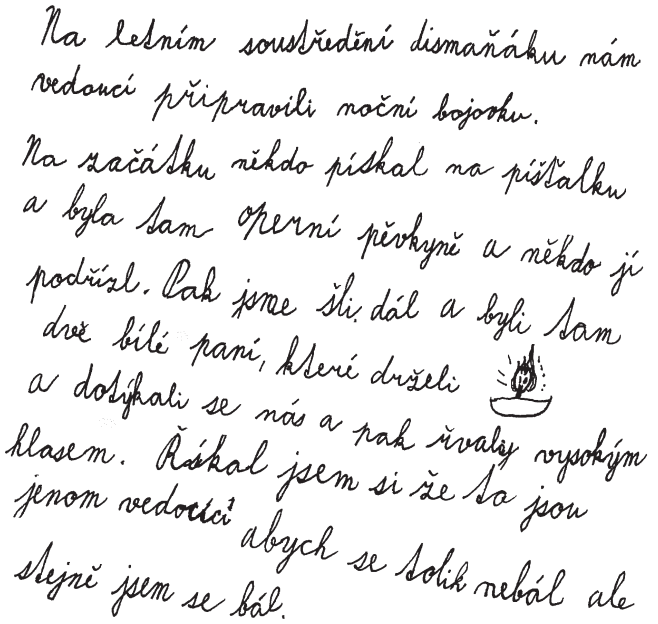 Na letním soustředění dismaňáku nám
vedoucí připravili noční bojovku.
Na začátku někdo pískal na píšťalku
a byla tam operní pěvkyně a někdo jí
podřízl. Pak jsme šli dál a byli tam
dvě bílé paní, které drželi
a dotýkali se nás a pak řvaly vysokým
hlasem. Řískal jsem si že to jsou
jenom vedoucí abych se tolik nebál ale
stejně jsem se bál.